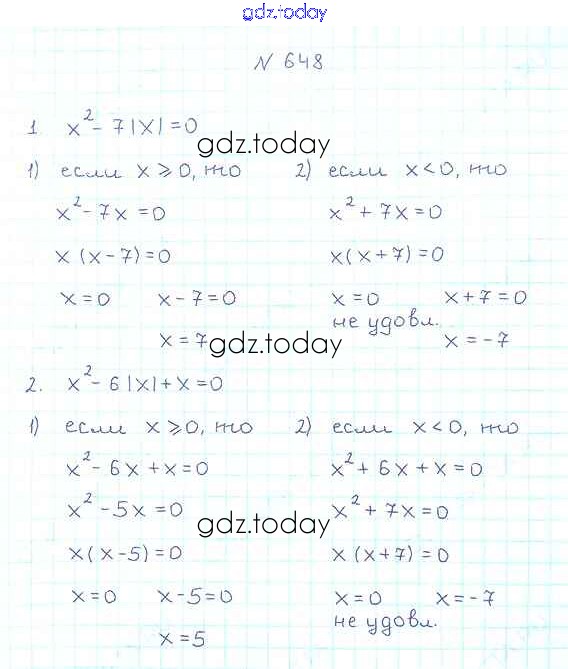 gdz.today
N 648
1. x² - 7|x| = 0
gdz.today
1) если x ⩾ 0, то 2) если x < 0, то
x² - 7x = 0 x² + 7x = 0
x (x - 7) = 0 x (x + 7) = 0
x = 0 x - 7 = 0 x = 0 x + 7 = 0
не удовл.
x = 7 x = -7
gdz.today
2. x² - 6|x| + x = 0
1) если x ⩾ 0, то 2) если x < 0, то
x² - 6x + x = 0 x² + 6x + x = 0
x² - 5x = 0 x² + 7x = 0
gdz.today
x (x - 5) = 0 x (x + 7) = 0
x = 0 x - 5 = 0 x = 0 x = -7
не удовл.
x = 5